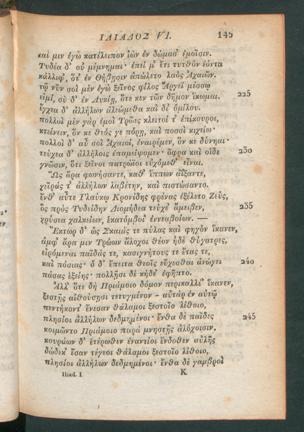 ΙΛΙΑΔΟΣ VI. 145
καί μιν ἐγὼ κατέλειπον ἰὼν ἐν δώμασ' ἐμοῖσιν.
Τυδέα δ' οὐ μέμνημαι· ἐπεί μ' ἔτι τυτθὸν ἐόντα
κάλλιφ', ὅτ' ἐν Θήβῃσιν ἀπώλετο λαὸς Ἀχαιῶν.
τῷ νῦν σοὶ μὲν ἐγὼ ξεῖνος φίλος Ἄργεϊ μέσσῳ
εἰμὶ, σὺ δ' ἐν Λυκίῃ, ὅτε κεν τῶν δῆμον ἵκωμαι. 225
ἔγχεα δ' ἀλλήλων ἀλεώμεθα καὶ δι' ὁμίλου·
πολλοὶ μὲν γὰρ ἐμοὶ Τρῶες κλειτοί τ' ἐπίκουροι,
κτείνειν, ὅν κε θεός γε πόρῃ, καὶ ποσσὶ κιχείω·
πολλοὶ δ' αὖ σοὶ Ἀχαιοὶ, ἐναιρέμεν, ὅν κε δύνηαι·
τεύχεα δ' ἀλλήλοις ἐπαμείψομεν· ὄφρα καὶ οἵδε 230
γνῶσιν, ὅτι ξεῖνοι πατρώϊοι εὐχόμεθ' εἶναι.
Ὣς ἄρα φωνήσαντε, καθ' ἵππων ἀΐξαντε,
χεῖράς τ' ἀλλήλων λαβέτην, καὶ πιστώσαντο.
ἔνθ' αὖτε Γλαύκῳ Κρονίδης φρένας ἐξέλετο Ζεὺς,
ὃς πρὸς Τυδείδην Διομήδεα τεύχε' ἄμειβεν, 235
χρύσεα χαλκείων, ἑκατόμβοι' ἐννεαβοίων. —
Ἕκτωρ δ' ὡς Σκαιάς τε πύλας καὶ φηγὸν ἵκανεν,
ἀμφ' ἄρα μιν Τρώων ἄλοχοι θέον ἠδὲ θύγατρες,
εἰρόμεναι παῖδάς τε, κασιγνήτους τε ἔτας τε,
καὶ πόσιας· ὁ δ' ἔπειτα θεοῖς εὔχεσθαι ἀνώγει 240
πάσας ἑξείης· πολλῇσι δὲ κήδε' ἐφῆπτο.
Ἀλλ' ὅτε δὴ Πριάμοιο δόμον περικαλλέ' ἵκανεν,
ξεστῇς αἰθούσῃσι τετυγμένον – αὐτὰρ ἐν αὐτῷ
πεντήκοντ' ἔνεσαν θάλαμοι ξεστοῖο λίθοιο,
πλησίοι ἀλλήλων δεδμημένοι· ἔνθα δὲ παῖδες 245
κοιμῶντο Πριάμοιο παρὰ μνηστῇς ἀλόχοισιν.
κουράων δ' ἑτέρωθεν ἐναντίοι ἔνδοθεν αὐλῆς
δώδεκ' ἔσαν τέγεοι θάλαμοι ξεστοῖο λίθοιο,
πλησίοι ἀλλήλων δεδμημένοι· ἔνθα δὲ γαμβροὶ
Iliad. I. K